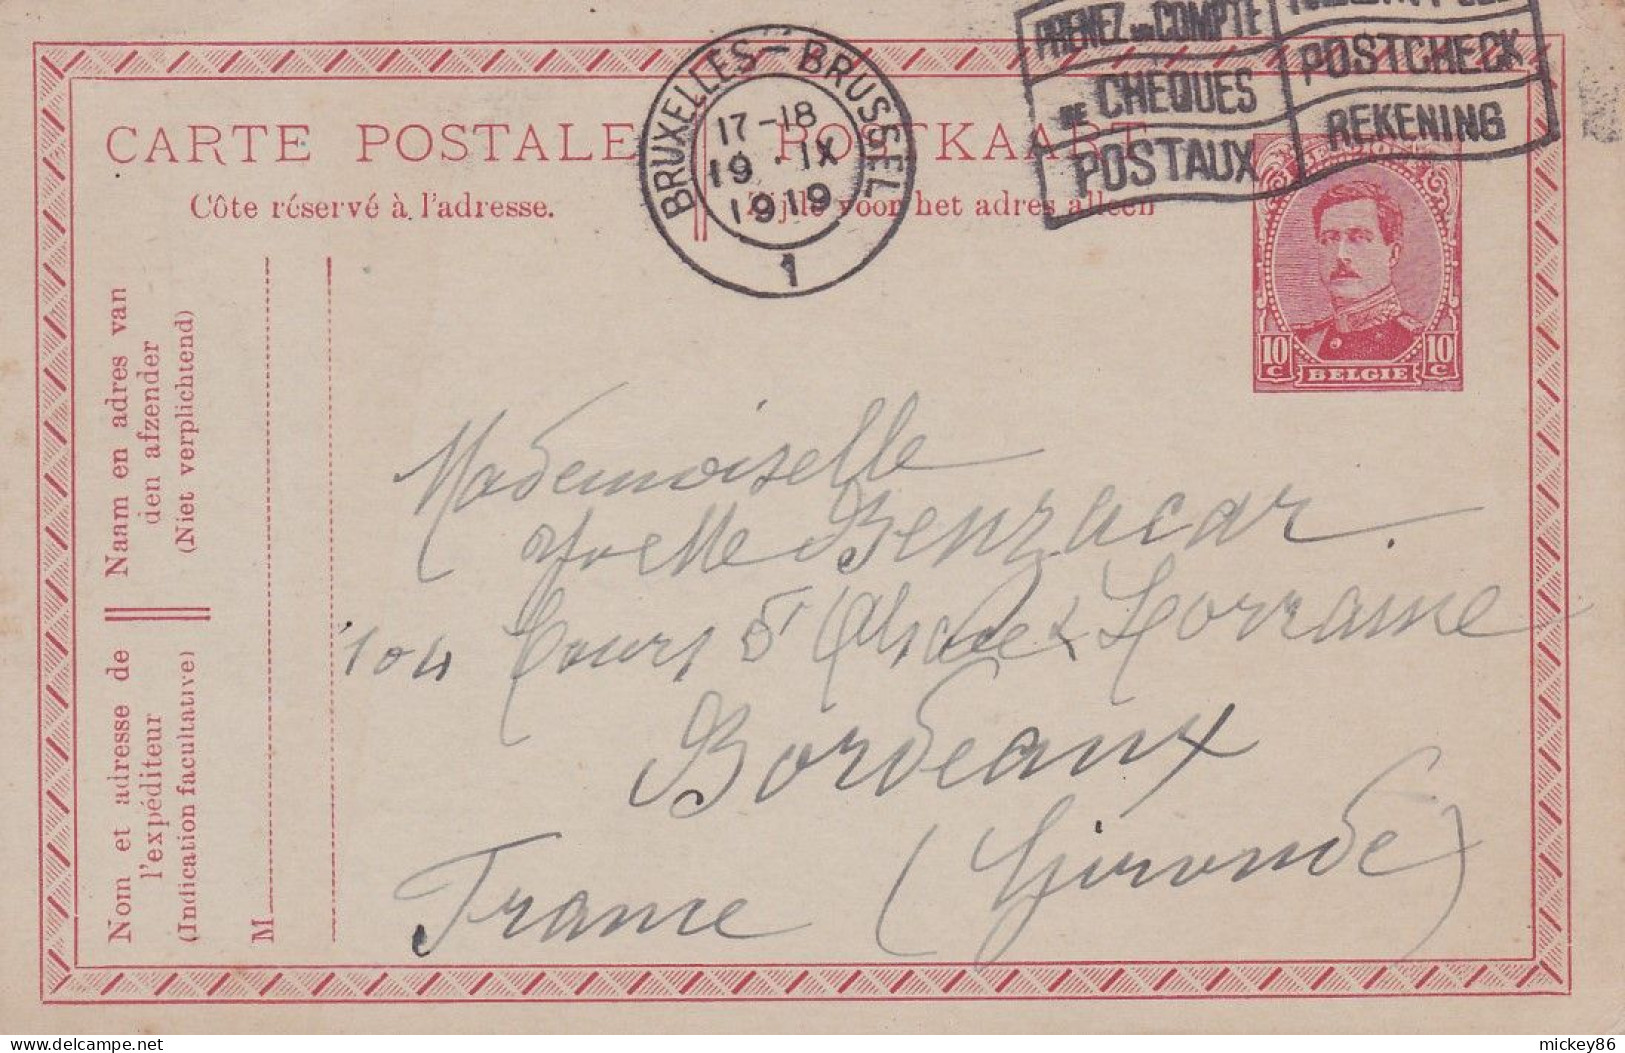 PRENEZ UN COMPTE
DE CHEQUES
POSTAUX
POSTCHECK
REKENING
BRUXELLES - BRUSSEL
17-18
19 · IX
1919
1
CARTE POSTALE
POSTKAART
Côte réservé à l'adresse.
Zijde voor het adres alleen
10 C
BELGIE
10 C
Naam en adres van
den afzender
(Niet verplichtend)
Nom et adresse de
l'expéditeur
(Indication facultative)
M
Mademoiselle
Yvette Benzacar
104 Cours d'Alsace & Lorraine
Bordeaux
(Gironde)
France
delcampe.net
mickey86